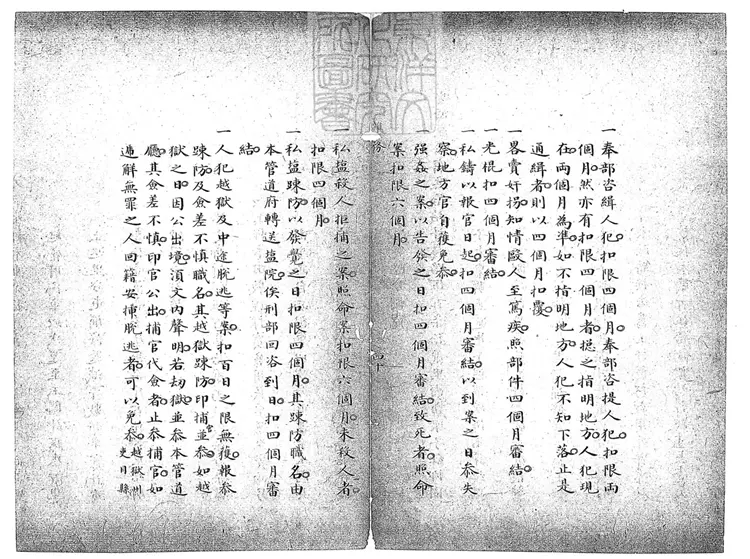 一奉部咨緝人犯扣限四個月奉部咨提人犯扣限兩
個月然亦有扣限四個月者揔之指明地方人犯現
在兩個月為準如不指明地方人犯不知下落止是
通緝者則以四個月扣
一畧賣奸拐知情毆人至篤疾照部件四個月審結
一光棍扣四個月審結
一私鑄以報官日起扣四個月審結以到案之日叅失
察地方官自獲免叅
一强姦之案以告發之日扣四個月審結致死者照命
案扣限六個月
務
四十
一私盐殺人拒捕之案照命案扣限六個月未殺人者
扣限四個月
一私盐踈防以發覺之日扣限四個月其踈防職名由
本管道府轉送盐院俟刑部回咨到日扣四個月審
結
一人犯越獄及中途脫逃等案扣百日之限無獲報叅
踈防及僉差不慎職名其越獄踈防印捕官並叅如越
獄之日因公出境湏文内聲明若刼獄並叅本管道
廳其僉差不慎印官公出捕官代僉者止叅捕官如
遞解無罪之人回籍安揷脫逃者可以免叅越獄州
吏目縣